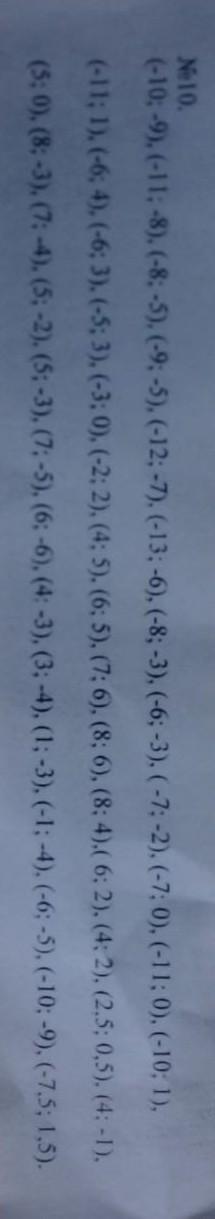 №10.
(-10; -9), (-11; -8), (-8; -5), (-9; -5), (-12; -7), (-13; -6), (-8; -3), (-6; -3), ( -7; -2), (-7; 0), (-11; 0), (-10; 1),
(-11; 1), (-6; 4), (-6; 3), (-5; 3), (-3; 0), (-2; 2), (4; 5), (6; 5), (7; 6), (8; 6), (8; 4),( 6; 2), (4; 2), (2,5; 0,5), (4; -1),
(5; 0), (8; -3), (7; -4), (5; -2), (5; -3), (7; -5), (6; -6), (4; -3), (3; -4), (1; -3), (-1; -4), (-6; -5), (-10; -9), (-7,5; 1,5).